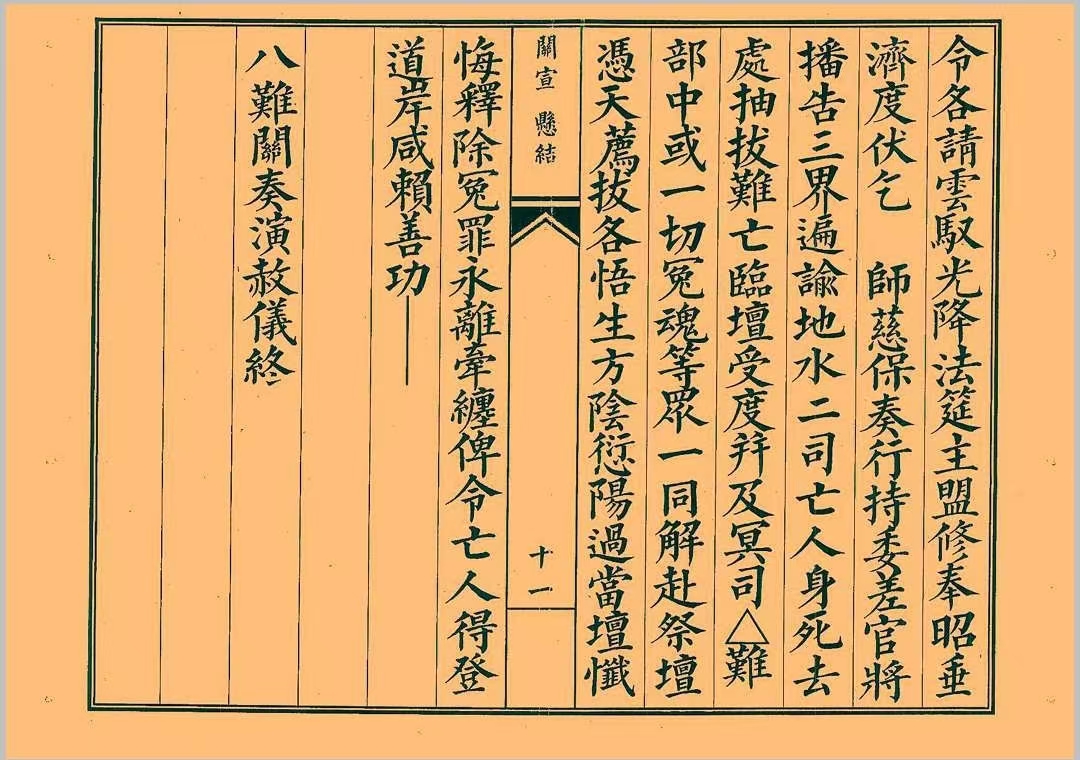 令各請雲馭光降法筵主盟修奉昭垂
濟度伏乞　師慈保奏行持委差官將
播告三界遍諭地水二司亡人身死去
處抽拔難亡臨壇受度并及冥司△難
部中或一切冤魂等眾一同解赴祭壇
憑天薦拔各悟生方陰愆陽過當壇懺
關宣　懸結　十一
悔釋除冤罪永離牽纏俾令亡人得登
道岸咸賴善功——
八難關奏演赦儀終